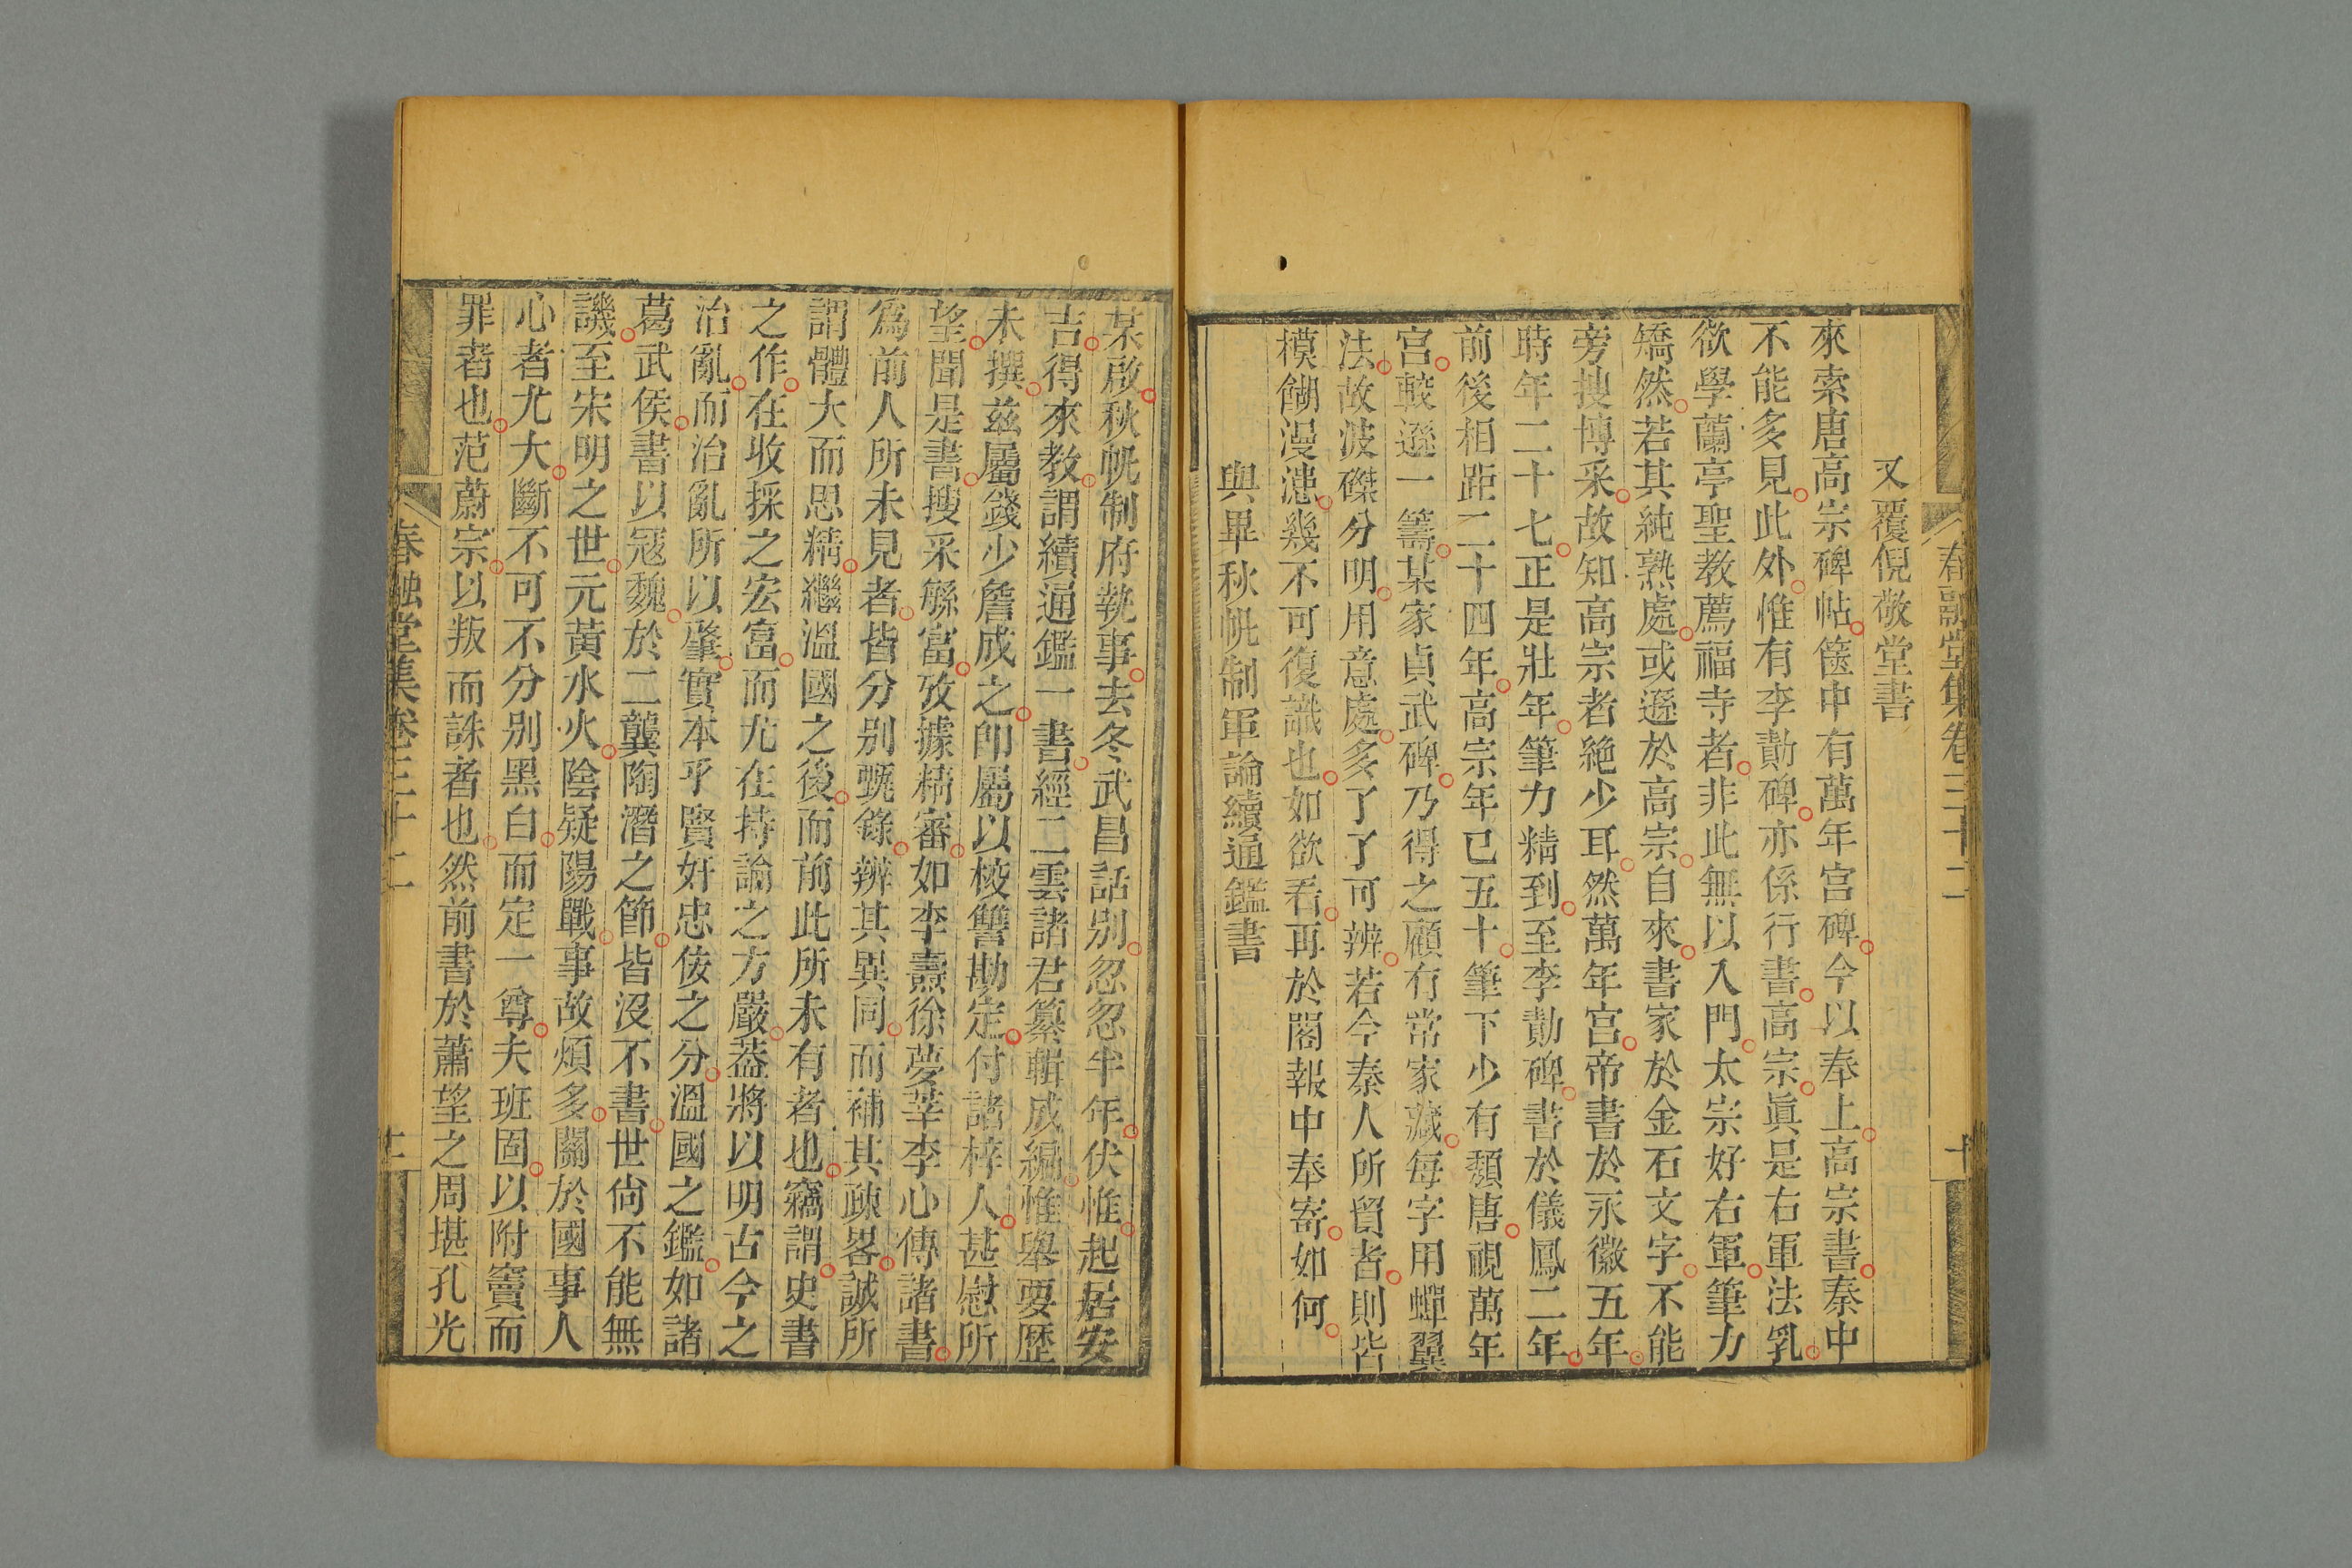 春融堂集卷三十二
十
又覆倪敬堂書
來索唐高宗碑帖篋中有萬年宮碑今以奉上高宗書秦中
不能多見此外惟有李勣碑亦係行書高宗眞是右軍法乳
欲學蘭亭聖教薦福寺者非此無以入門太宗好右軍筆力
矯然若其純熟處或遜於高宗自來書家於金石文字不能
旁搜博采故知高宗者絶少耳然萬年宮帝書於永徽五年
時年二十七正是壯年筆力精到至李勣碑書於儀鳳二年
前後相距二十四年高宗年已五十筆下少有頽唐視萬年
宮較遜一籌某家貞武碑乃得之顧有常家藏每字用蟬翼
法故波磔分明用意處多了了可辨若今秦人所貿者則皆
模餬漫漶幾不可復識也如欲看再於閣報中奉寄如何
與畢秋帆制軍論續通鑑書
某啟秋帆制府執事去冬武昌話別忽忽半年伏惟起居安
吉得來教謂續通鑑一書經二雲諸君纂輯成編惟舉要歷
未撰兹屬錢少詹成之卽屬以校讐勘定付諸梓人甚慰所
望聞是書搜采緐富攷據精審如李燾徐夢莘李心傳諸書
爲前人所未見者皆分別甄錄辨其異同而補其疎畧誠所
謂體大而思精繼溫國之後而前此所未有者也竊謂史書
之作在收採之宏富而尤在持論之方嚴葢將以明古今之
治亂而治亂所以肇實本乎賢奸忠佞之分溫國之鑑如諸
葛武侯書以寇魏於二龔陶潛之節皆沒不書世尙不能無
譏至宋明之世元黃水火陰疑陽戰事故煩多關於國事人
心者尤大斷不可不分別黑白而定一尊夫班固以附竇而
罪者也范蔚宗以叛而誅者也然前書於蕭望之周堪孔光
春融堂集卷三十二